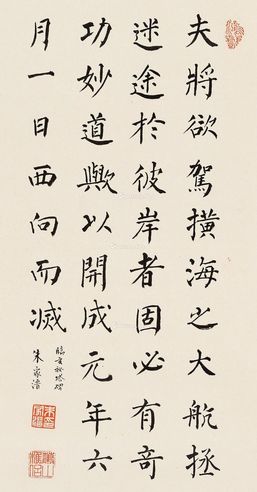 夫將欲駕橫海之大航拯
迷途於彼岸者固必有奇
功妙道歟以開成元年六
月一日西向而滅
臨玄秘塔碑
朱家濟